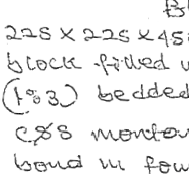 225 x 225 x 45
block filled
(1:3) bedded
c&s mortar
bond in fou